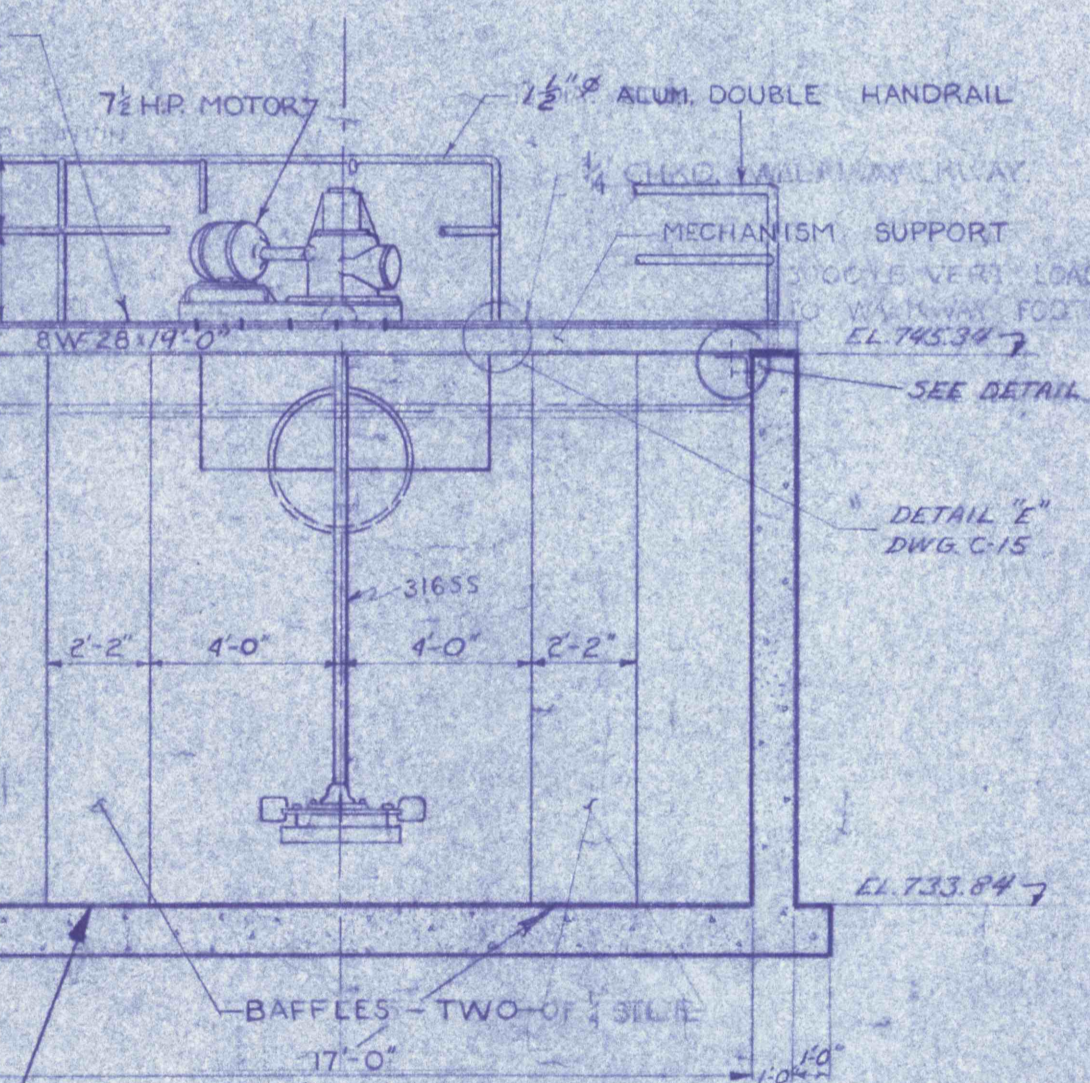 7½ H.P. MOTOR
1½"ø ALUM. DOUBLE HANDRAIL
¼ CHKD.
MECHANISM SUPPORT
VERT. LOA
8 WF 28 x 19'-0"
EL. 745.34
SEE DETAIL
DETAIL "E"
DWG. C-15
316SS
2'-2" 4'-0" 4'-0" 2'-2"
EL. 733.84
BAFFLES - TWO OF ¼
17'-0"
1'-0" 1'-0"